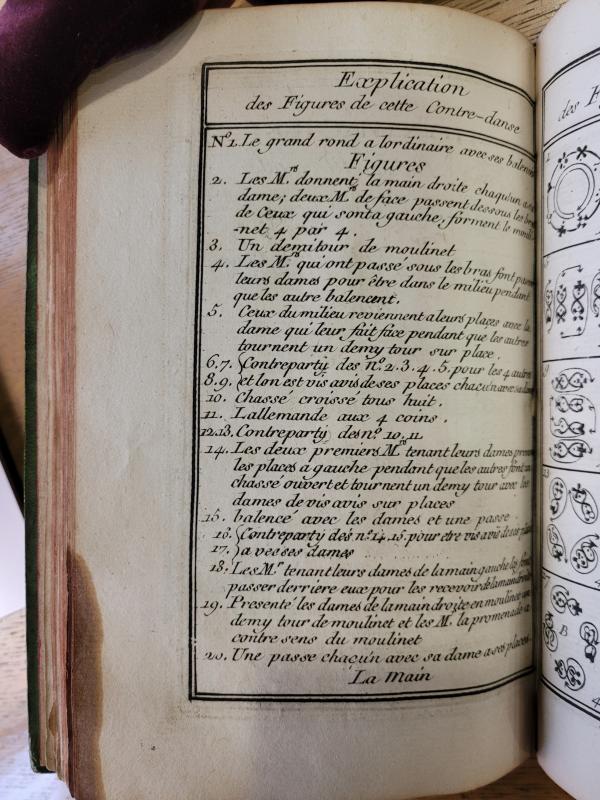 Explication
des Figures de cette Contre-danse
Nº1. Le grand rond a lordinaire avec ses balen
Figures
2. Les Mrs donnent la main droite chaqu'un a
dame; deux Mrs de face passent dessous les
de Ceux qui sont a gauche, forment le mouli
-net 4 par 4.
3. Un demi tour de moulinet
4. Les Mrs qui ont passé sous les bras font
leurs dames pour être dans le milieu pendant
que les autre balencent.
5. Ceux du milieu reviennent a leurs places avec la
dame qui leur fait face pendant que les autres
tournent un demy tour sur place.
6.7. Contreparty des nº. 2. 3. 4. 5. pour les 4 autres
8.9. et lon est vis avis de ses places chaçu'n avec sa dame
10. Chassé croissé tous huit.
11. L'allemande aux 4 coins.
12.13. Contreparty des nº. 10. 11
14. Les deux premiers Mrs tenant leurs dames
les places a gauche pendant que les autres font un
chassé ouvert et tournent un demy tour avec les
dames de vis avis sur places
15. balencé avec les dames et une passe
16. Contreparty des nº. 14. 15. pour etre vis avis
17. avec ses dames
18. Les Mrs tenant leurs dames de la main gauche les font
passer derriere eux pour les recevoir de la main droite
19. Presenté les dames de la main droite en moulinet
demy tour de moulinet et les Mrs la promenade a
contre sens du moulinet
20. Une passe chaçu'n avec sa dame a ses places
La Main
des F
B
4